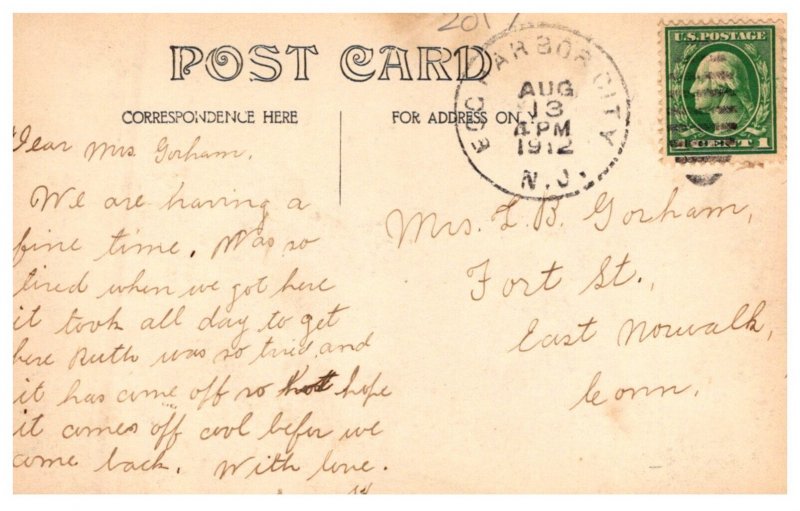 2017
POST CARD
CORRESPONDENCE HERE
FOR ADDRESS ONLY
EGG HARBOR CITY
AUG
13
4 PM
1912
N.J.
U.S. POSTAGE
1 CENT 1
Dear Mrs Gorham,
We are having a
fine time. Was so
tired when we got here
it took all day to get
here Ruth was so tired and
it has come off so hot hope
it comes off cool befor we
come back. With love.
Mrs. L. B. Gorham,
Fort St.,
East Norwalk,
Conn.